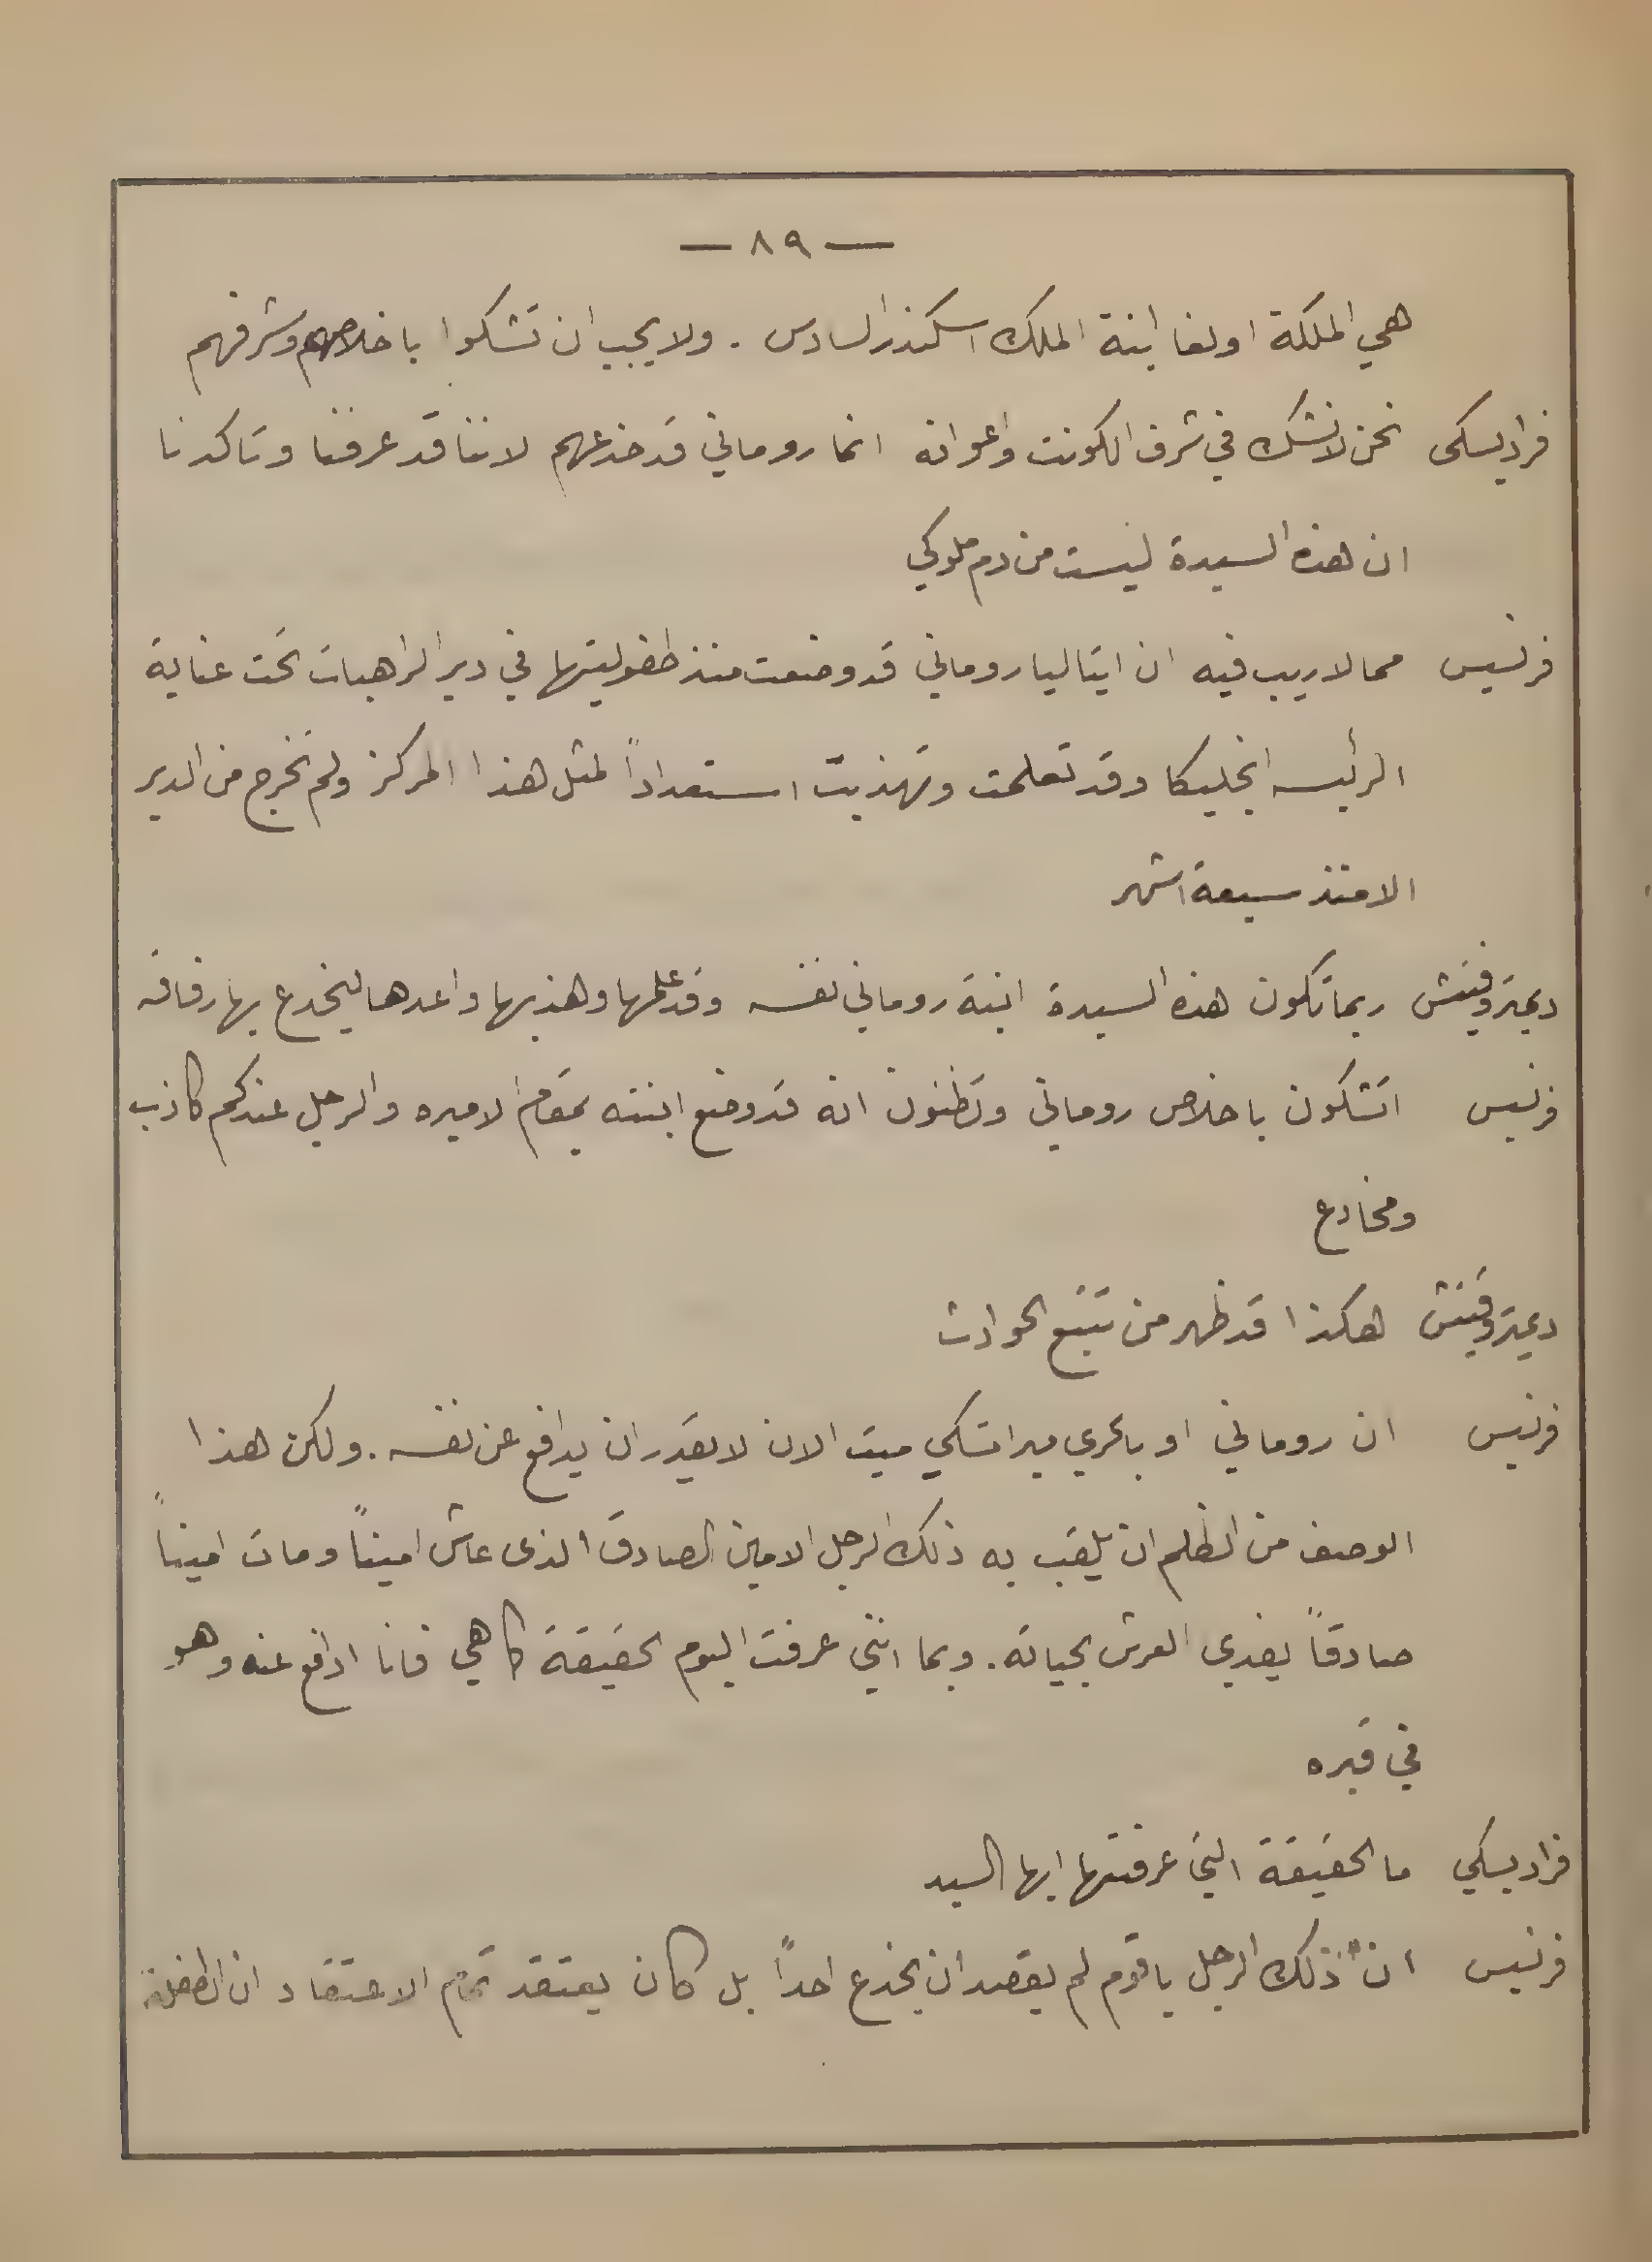 — ٨٩ —
هي الملكة اولغا ابنة الملك اسكندر السادس . ولا يجب ان تشكوا باخلاصهم وشرفهم
فراديسكى نحن لا نشك في شرف الكونت واعوانه انما روماني قد خدعهم لاننا قد عرفنا وتاكدنا
ان هذه السيدة ليست من دم ملوكي
فرنسيس مما لا ريب فيه ان ايتاليا روماني قد وضعت منذ طفوليتها في دير الراهبات تحت عناية
الرئيسه انجليكا وقد تعلمت وتهذبت استعداداً لمثل هذا المركز ولم تخرج من الدير
الا منذ سبعة اشهر
ديمتروفتش ربما تكون هذه السيدة ابنة روماني نفسه وقد علمها وهذبها واعدها ليخدع بها رفاقه
فرنسيس اتشكون باخلاص روماني وتظنون انه قد وضع ابنته بمقام الاميره والرجل عندكم كاذب
ومخادع
ديمتروفتش هكذا قد ظهر من تتبع الحوادث
فرنسيس ان روماني او بالحري ميرامسكي ميت الان لا يقدر ان يدافع عن نفسه . ولكن هذا
الوصف من الظلم ان يلقب به ذلك الرجل الامين الصادق الذى عاش اميناً ومات اميناً
صادقاً يفدي العرش بحياته . وبما انني عرفت اليوم الحقيقة كما هي فانا ادافع عنه وهو
في قبره
فراديسكي ما الحقيقة التي عرفتها ايها السيد
فرنسيس ان ذلك الرجل يا قوم لم يقصد ان يخدع احداً بل كان يعتقد تمام الاعتقاد ان الطفلة